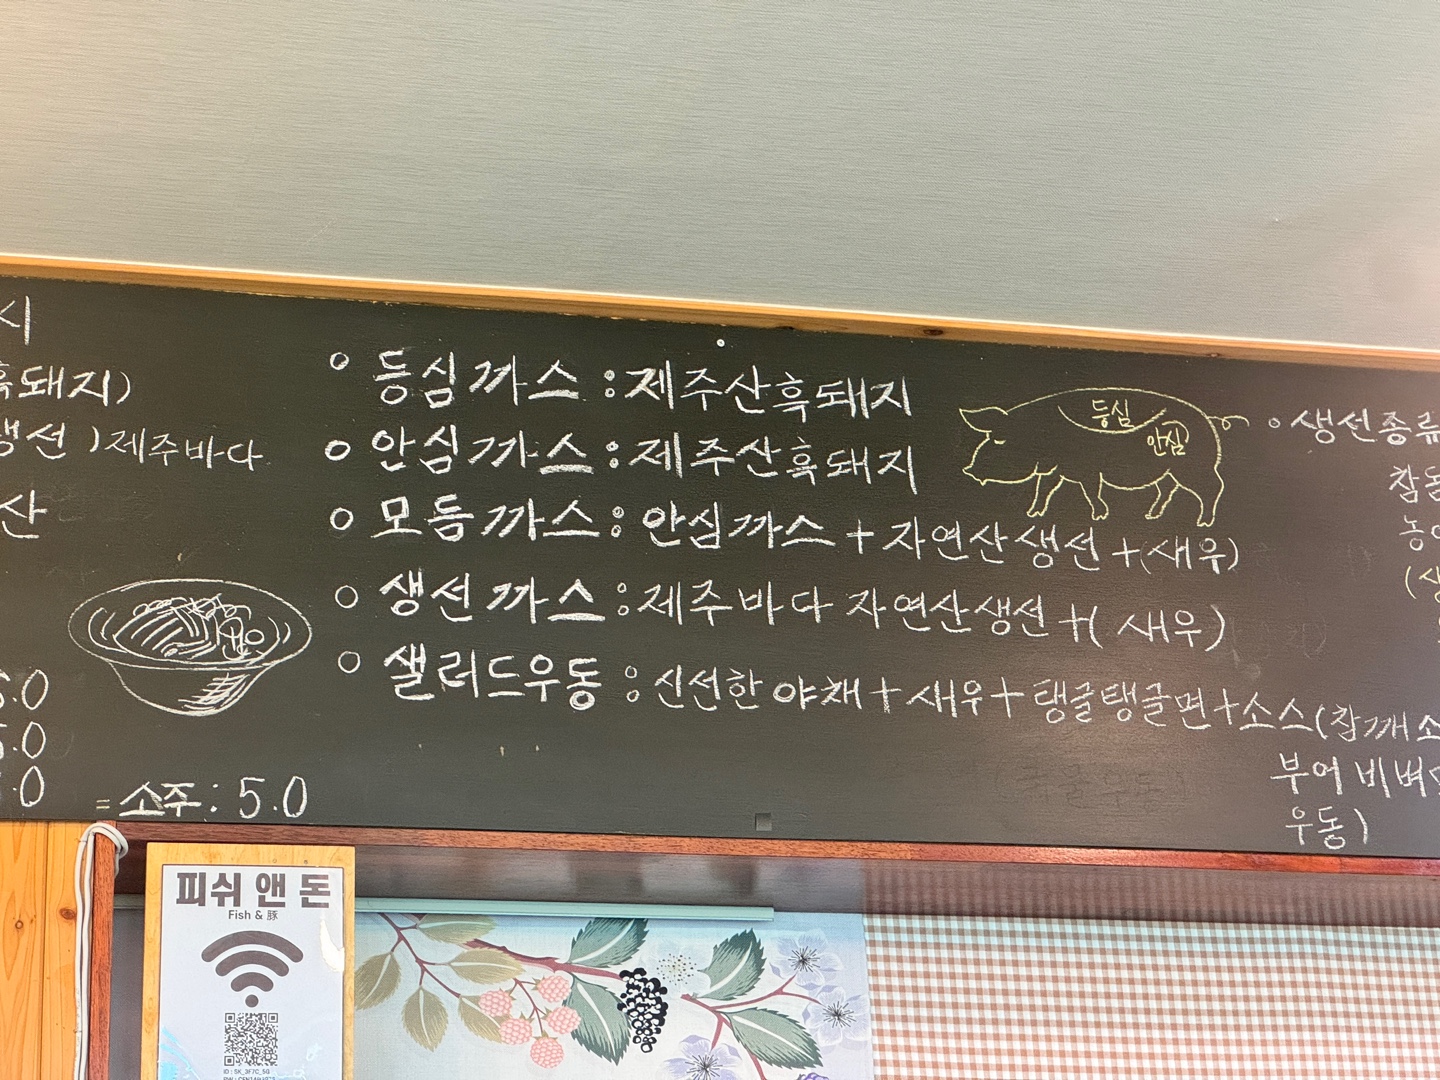 시
흑돼지)
생선 ) 제주바다
산
.0
5.0
.0
= 소주 : 5.0
○ 등심까스 : 제주산흑돼지
○ 안심까스 : 제주산흑돼지
○ 모듬까스 : 안심까스 + 자연산생선 + (새우)
○ 생선까스 : 제주바다 자연산생선 + ( 새우)
○ 샐러드우동 : 신선한 야채 + 새우 + 탱글탱글면 + 소스(참깨소
부어 비벼
우동)
등심
안심
○ 생선종류
참돔
농어
(생
피쉬 앤 돈
Fish & 豚
ID : SK_3F7C_5G